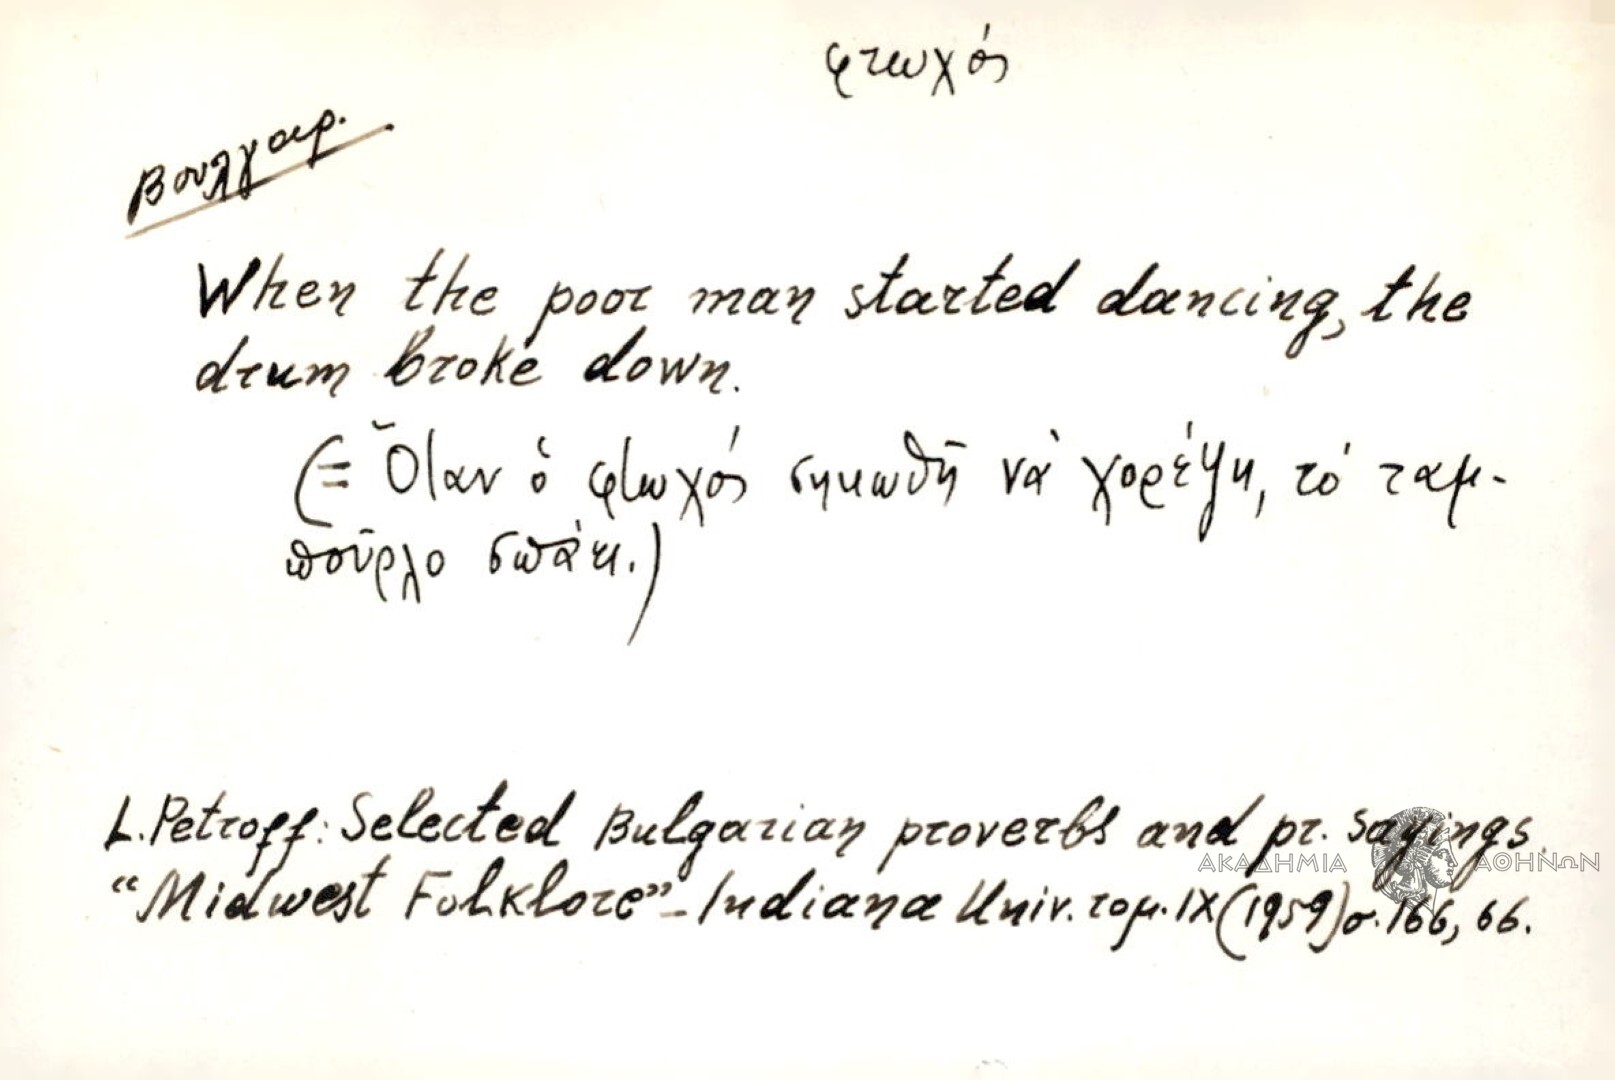 φτωχός
Βουλγαρ.
When the poor man started dancing, the
drum broke down.
(= Ὅταν ὁ φτωχός σηκωθῆ νὰ χορέψη, τό ταμ-
ποῦρλο σπάει.)
L. Petroff: Selected Bulgarian proverbs and pr. sayings.
ΑΚΑΔΗΜΙΑ ΑΘΗΝΩΝ
“Midwest Folklore” - Indiana Univ. τομ. IX (1959) σ. 166, 66.